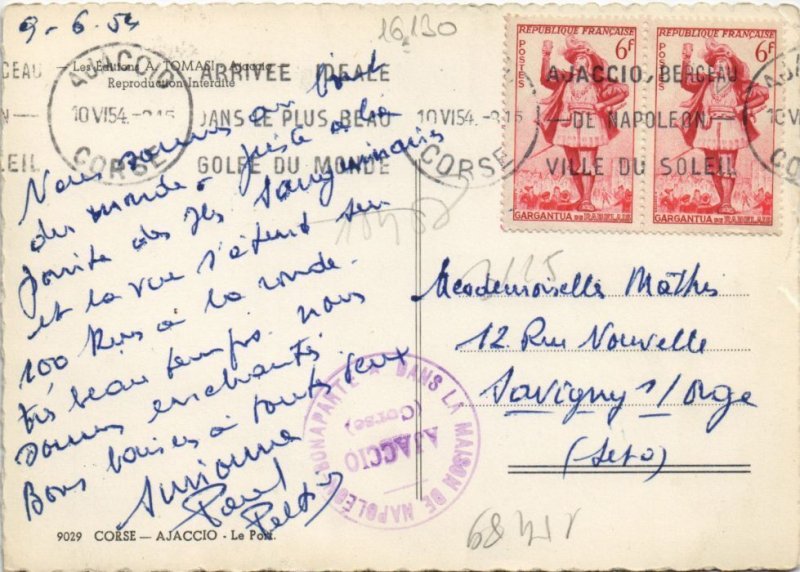 9-6.54
16,130
— Les Editions A. TOMASI - Ajaccio —
Reproduction Interdite
AJACCIO
10 VI 54
CORSE
ARRIVÉE IDEALE
DANS LE PLUS BEAU
GOLFE DU MONDE
AJACCIO
10 VI 54
CORSE
AJACCIO, BERCEAU
— DE NAPOLEON —
VILLE DU SOLEIL
REPUBLIQUE FRANÇAISE
POSTES
6F
GARGANTUA DE RABELAIS
REPUBLIQUE FRANÇAISE
POSTES
6F
GARGANTUA DE RABELAIS
Nous sommes au bout
du monde - juste à la
pointe des Iles Sanguinaires
et la vue s'étend sur
100 Kms à la ronde.
très beau temps. nous
sommes enchantés.
Bons baisers à toutes deux
Paul
Mesdemoiselles Mathis
12 Rue Nouvelle
Savigny s/Orge
(Seto)
DANS LA MAISON DE NAPOLEON BONAPARTE A
AJACCIO
(Corse)
9029 CORSE — AJACCIO - Le Port.